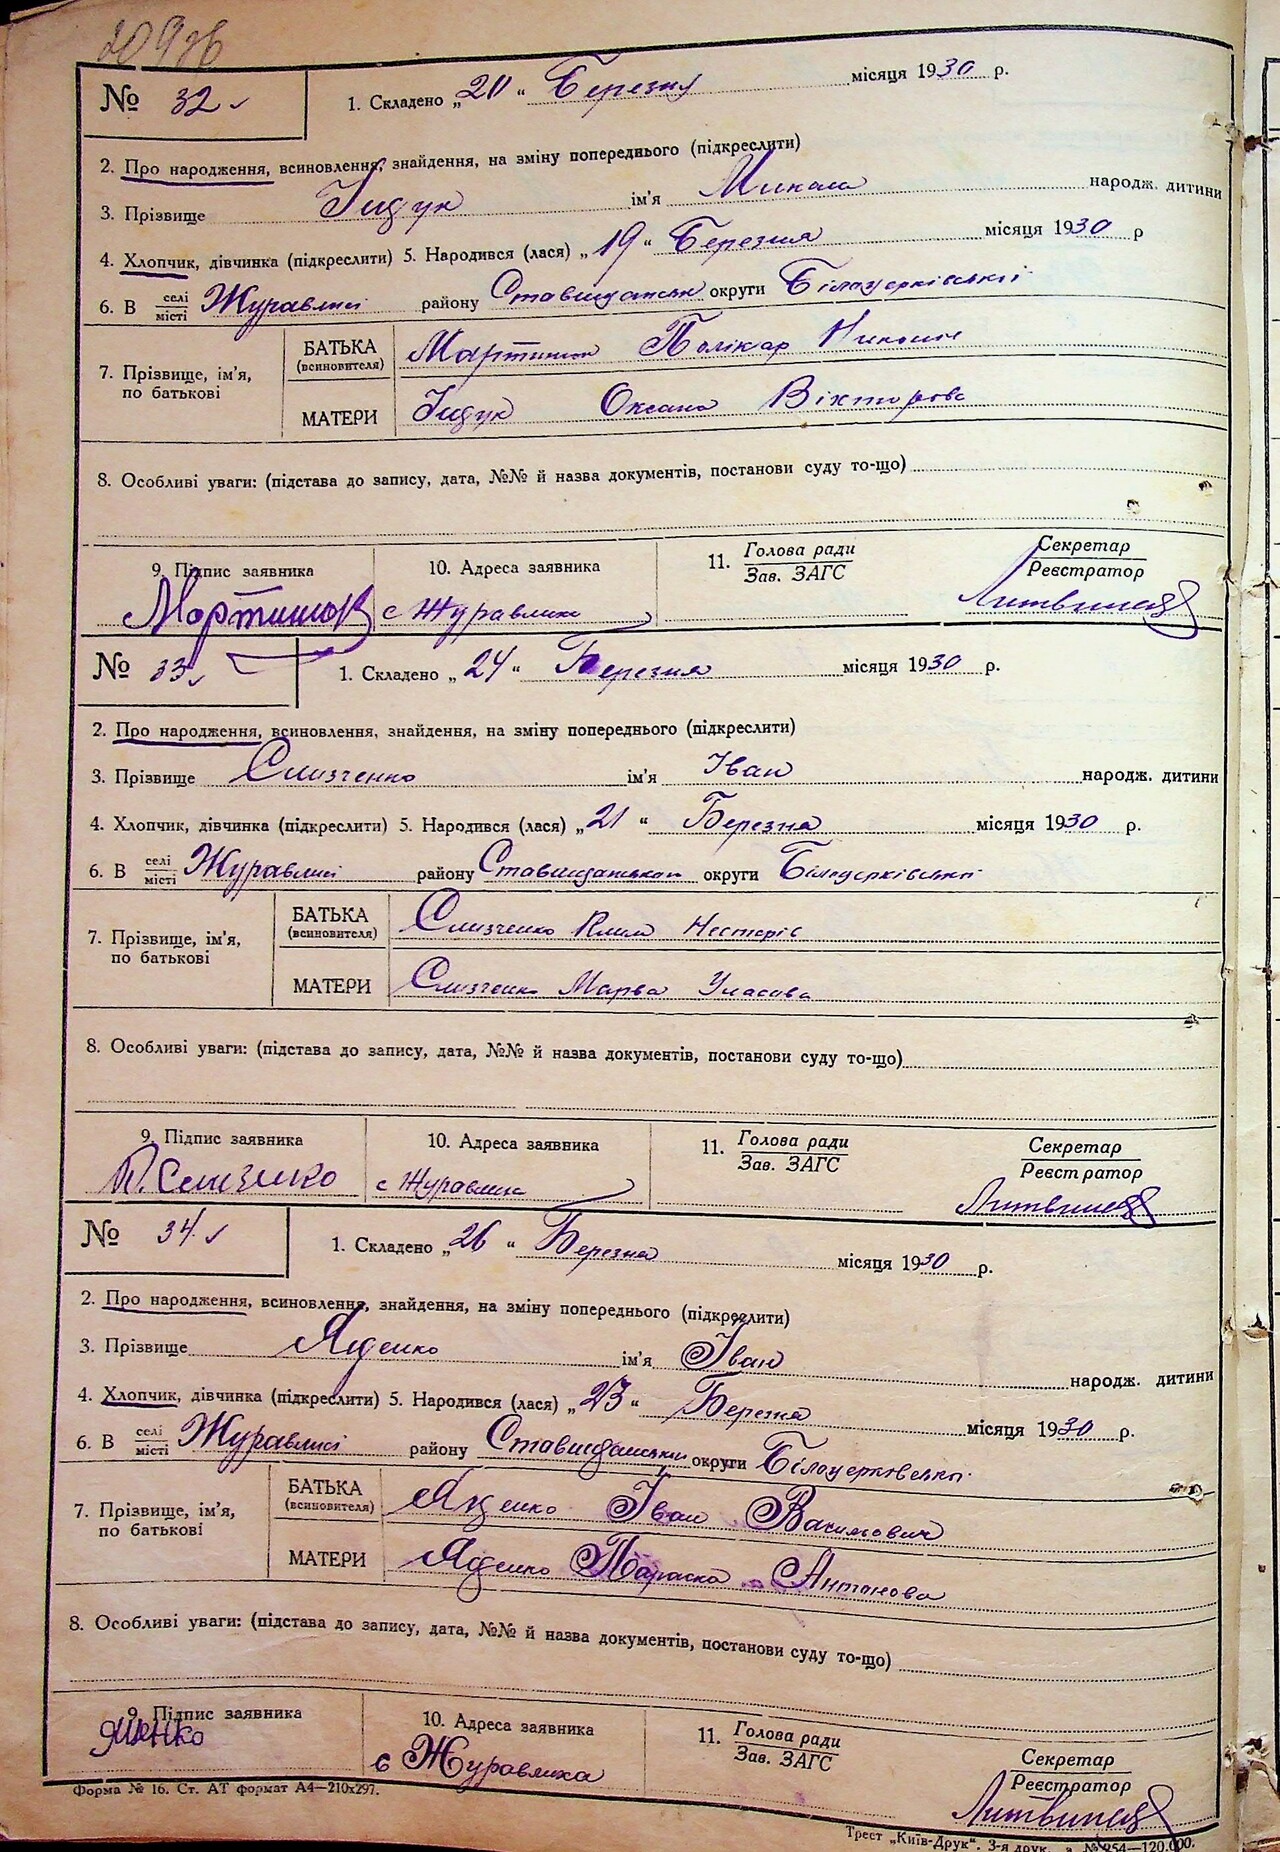 № 32
1. Складено „20“ Березня місяця 1930 р.
2. Про народження, всиновлення, знайдення, на зміну попереднього (підкреслити)
3. Прізвище ім'я Микола народж. дитини
4. Хлопчик, дівчинка (підкреслити) 5. Народився (лася) „19“ Березня місяця 1930 р
6. В селі місті Журавлисі району округи Білоцерківської
7. Прізвище, ім'я, по батькові
БАТЬКА (всиновителя) Мартинюк Полікар
МАТЕРИ Оксана Вікторова
8. Особливі уваги: (підстава до запису, дата, №№ й назва документів, постанови суду то-що)
9. Підпис заявника 10. Адреса заявника 11. Голова ради Зав. ЗАГС Секретар Реєстратор
с Журавлиха
№ 33
1. Складено „24“ Березня місяця 1930 р.
2. Про народження, всиновлення, знайдення, на зміну попереднього (підкреслити)
3. Прізвище Слизченко ім'я Іван народж. дитини
4. Хлопчик, дівчинка (підкреслити) 5. Народився (лася) „21“ Березня місяця 1930 р.
6. В селі місті Журавлисі району округи Білоцерківської
7. Прізвище, ім'я, по батькові
БАТЬКА (всиновителя) Слизченко Клим Нестерів
МАТЕРИ Слизченко Марва Уласова
8. Особливі уваги: (підстава до запису, дата, №№ й назва документів, постанови суду то-що)
9. Підпис заявника 10. Адреса заявника 11. Голова ради Зав. ЗАГС Секретар Реєстратор
с Журавлиха
№ 34
1. Складено „26“ Березня місяця 1930 р.
2. Про народження, всиновлення, знайдення, на зміну попереднього (підкреслити)
3. Прізвище Яценко ім'я Іван народж. дитини
4. Хлопчик, дівчинка (підкреслити) 5. Народився (лася) „23“ Березня місяця 1930 р.
6. В селі місті Журавлисі району округи Білоцерківської
7. Прізвище, ім'я, по батькові
БАТЬКА (всиновителя) Яценко Іван Васильович
МАТЕРИ Яценко Параска Антонова
8. Особливі уваги: (підстава до запису, дата, №№ й назва документів, постанови суду то-що)
9. Підпис заявника 10. Адреса заявника 11. Голова ради Зав. ЗАГС Секретар Реєстратор
с Журавлиха
Форма № 16. Ст. АТ формат А4—210x297.
Трест „Київ-Друк“. 3-я друк. з. № 254—120.000.